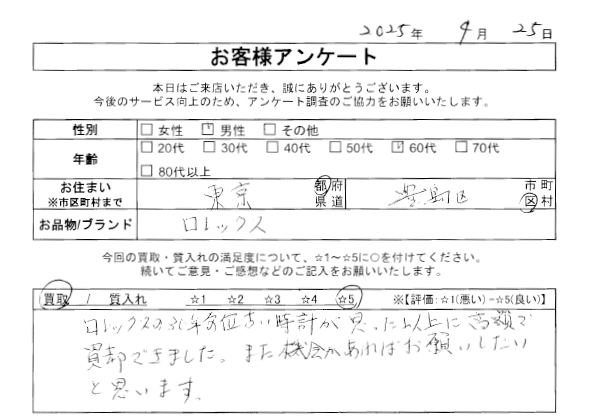 2025年 9月 25日
お客様アンケート
本日はご来店いただき、誠にありがとうございます。
今後のサービス向上のため、アンケート調査のご協力をお願いいたします。
性別 □ 女性 □ 男性 □ その他
年齢 □ 20代 □ 30代 □ 40代 □ 50代 □ 60代 □ 70代
□ 80代以上
お住まい ※市区町村まで 東京 都府県道 豊島区 市町区村
お品物/ブランド ロレックス
今回の買取・質入れの満足度について、☆1～☆5に○を付けてください。
続いてご意見・ご感想などのご記入をお願いいたします。
買取 / 質入れ ☆1 ☆2 ☆3 ☆4 ☆5 ※【評価:☆1(悪い)-☆5(良い)】
ロレックスの30年位古い時計が思った以上に高額で
買却できました。また機会があればお願いしたい
と思います。